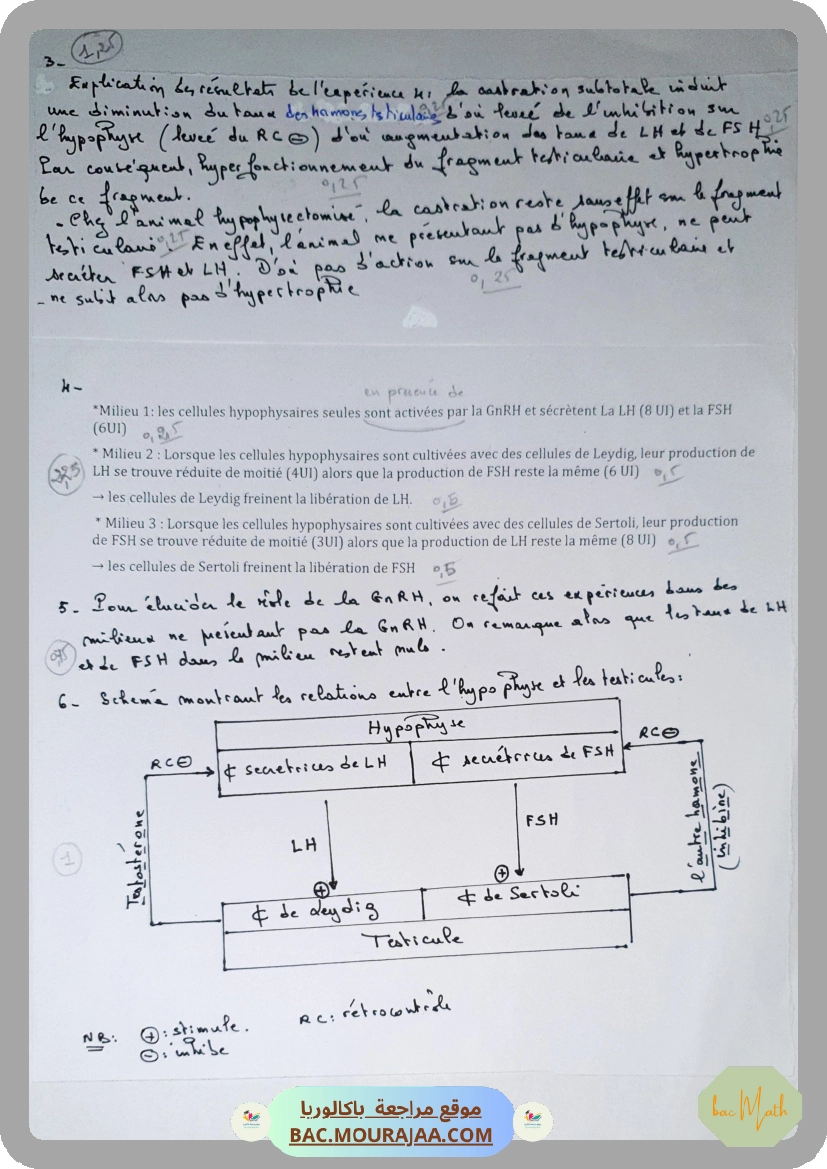 3- 1,25
Explication des résultats de l'expérience 4: la castration subtotale induit
une diminution du taux des hormones testiculaires d'où levée de l'inhibition sur 0,25
l'hypophyse (levée du RC⊖) d'où augmentation des taux de LH et de FSH 0,25
Par conséquent, hyperfonctionnement du fragment testiculaire et hypertrophie
de ce fragment. 0,25
- Chez l'animal hypophysectomisé, la castration reste sans effet sur le fragment
testiculaire. 0,25 En effet, l'animal ne présentant pas d'hypophyse, ne peut
secréter FSH et LH. D'où pas d'action sur le fragment testiculaire et
- ne subit alors pas d'hypertrophie 0,25
4-
en présence de
*Milieu 1: les cellules hypophysaires seules sont activées par la GnRH et sécrètent La LH (8 UI) et la FSH
(6UI) 0,25
* Milieu 2 : Lorsque les cellules hypophysaires sont cultivées avec des cellules de Leydig, leur production de
LH se trouve réduite de moitié (4UI) alors que la production de FSH reste la même (6 UI) 0,5
2,25
→ les cellules de Leydig freinent la libération de LH. 0,5
* Milieu 3 : Lorsque les cellules hypophysaires sont cultivées avec des cellules de Sertoli, leur production
de FSH se trouve réduite de moitié (3UI) alors que la production de LH reste la même (8 UI) 0,5
→ les cellules de Sertoli freinent la libération de FSH 0,5
5- Pour élucider le rôle de la GnRH, on refait ces expériences dans des
milieux ne présentant pas la GnRH. On remarque alors que les taux de LH
et de FSH dans le milieu restent nuls.
0,75
6- Schéma montrant les relations entre l'hypophyse et les testicules:
Hypophyse
RC⊖
RC⊖
¢ secrétrices de LH
¢ secrétrices de FSH
Testostérone
LH
FSH
l'autre hormone
(inhibine)
1
⊕
⊕
¢ de Leydig
¢ de Sertoli
Testicule
NB: ⊕: stimule. RC: rétrocontrôle
⊖: inhibe
موقع مراجعة باكالوريا
BAC.MOURAJAA.COM
bac Math